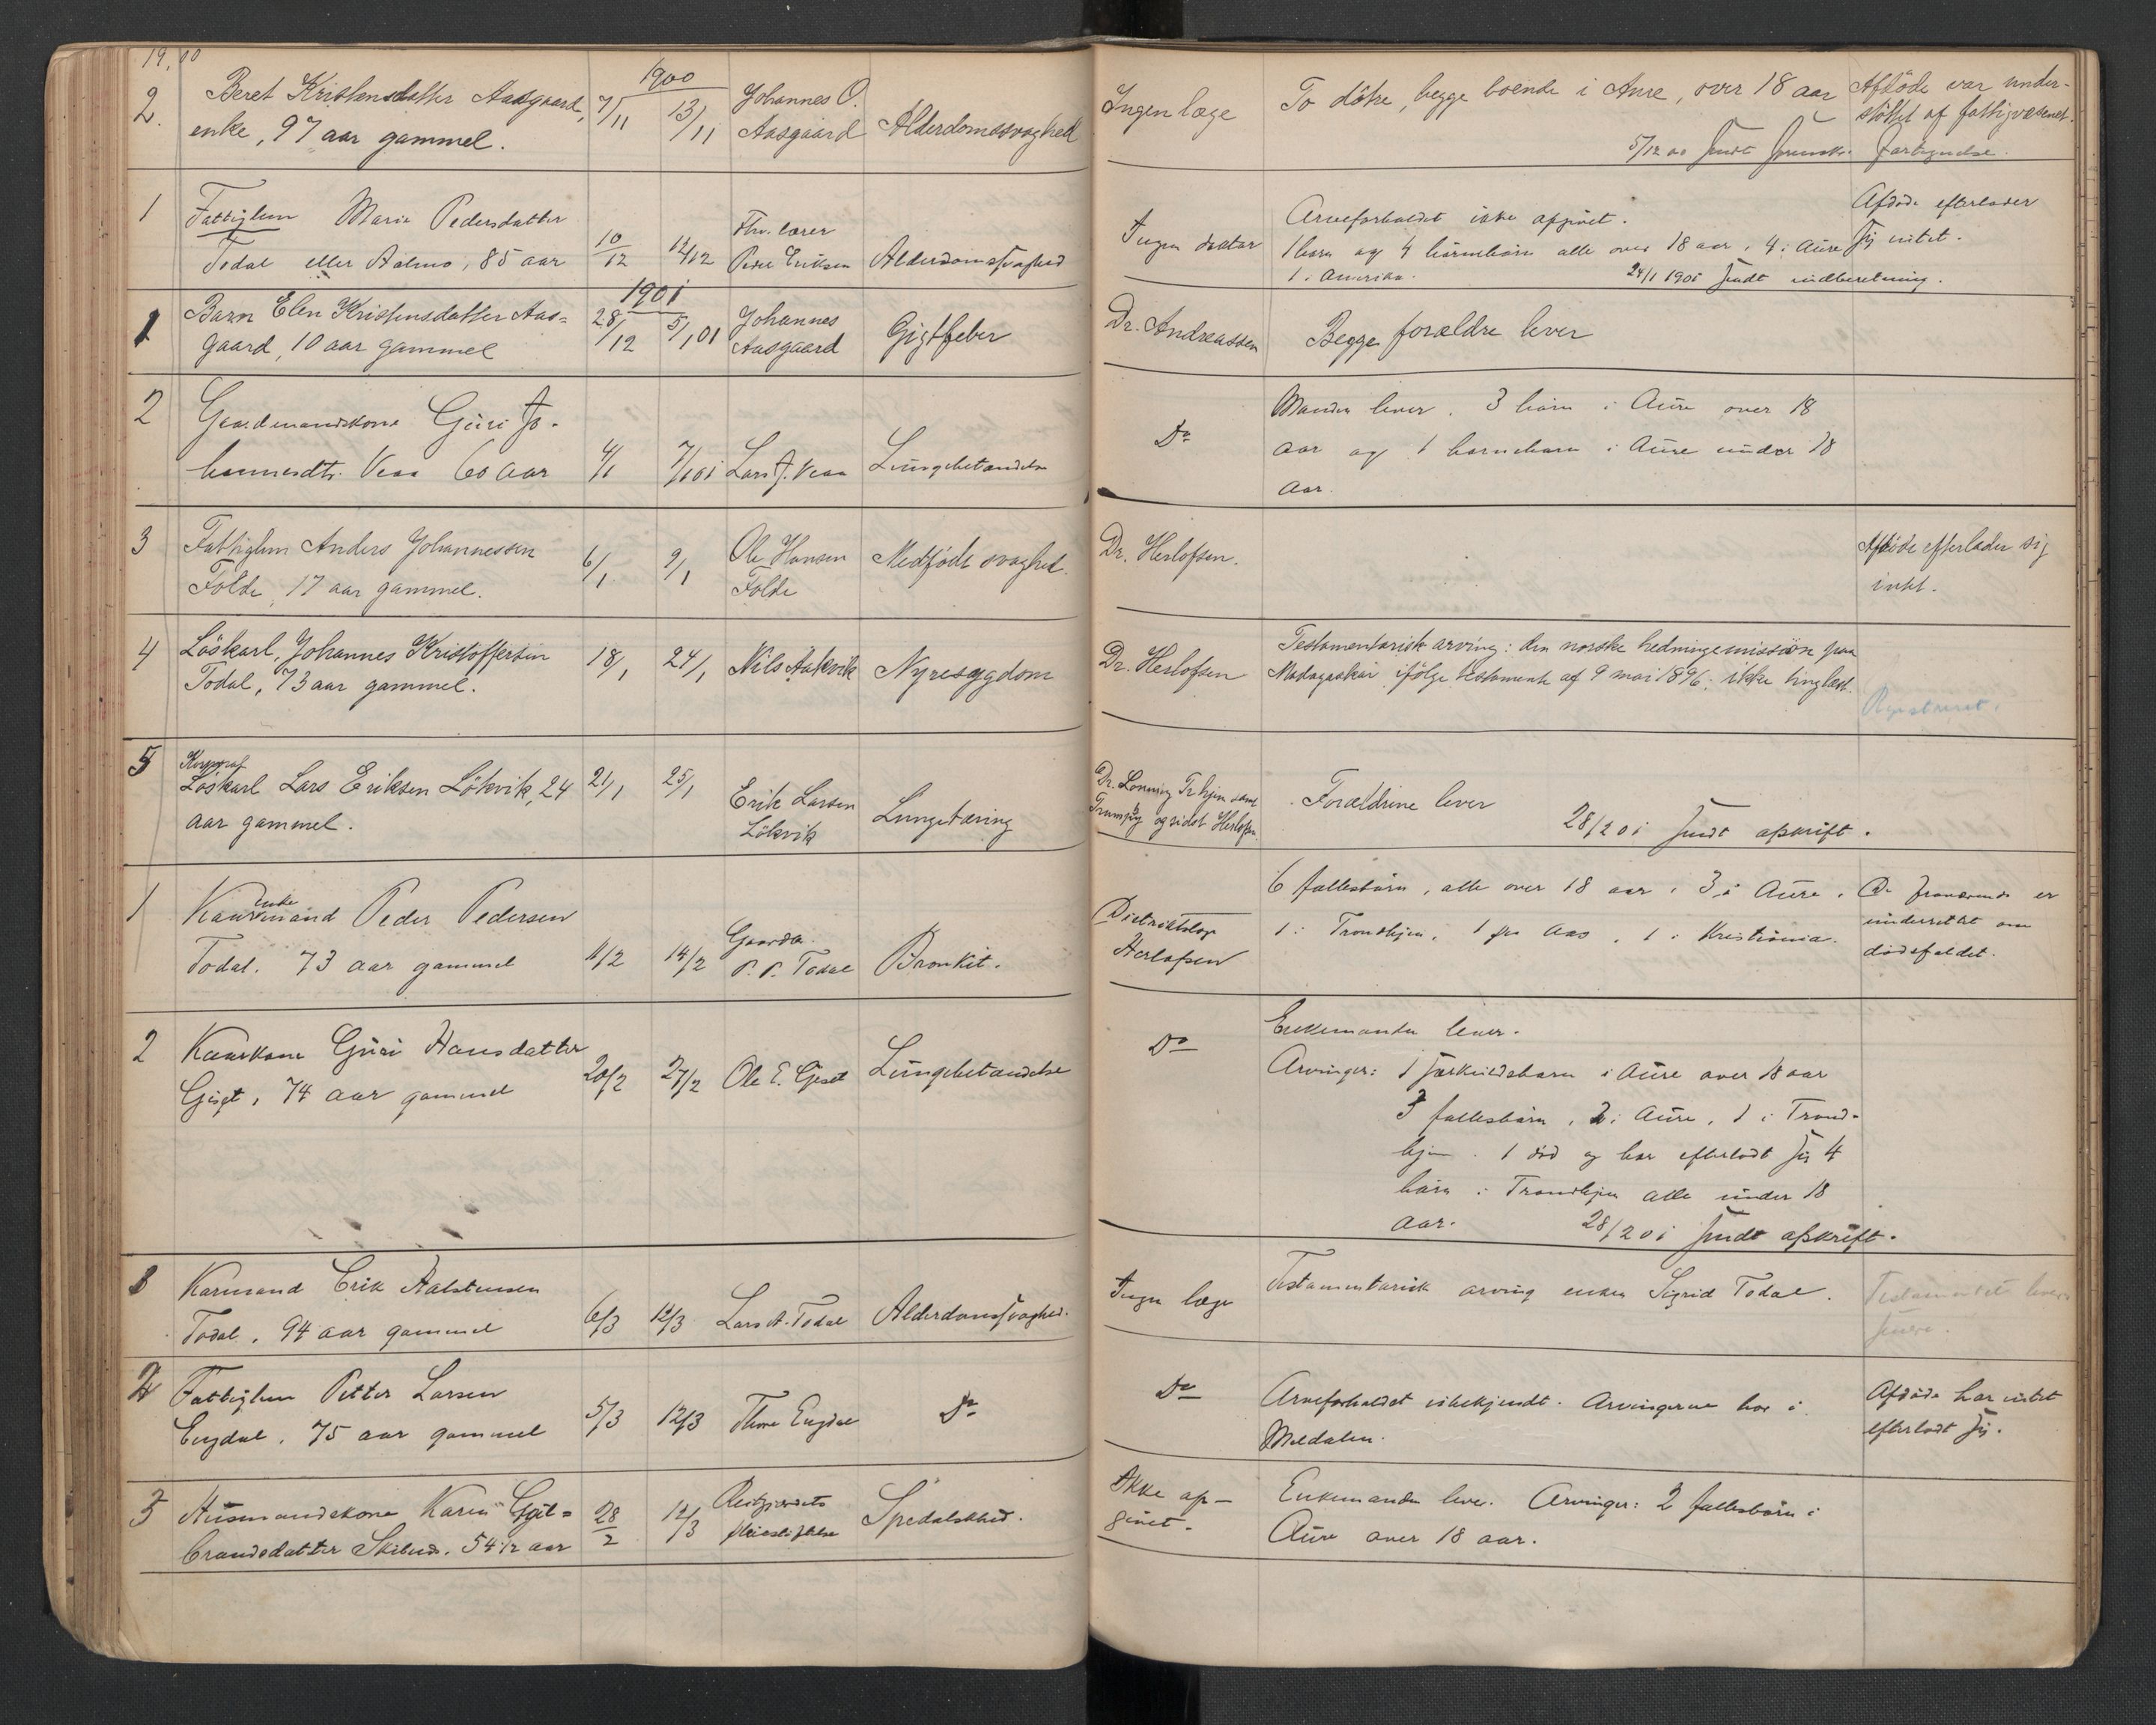 19,00
1900
2. Beret Kristensdatter Aasgaard, 7/11 13/11 Johannes O. Ingen læge To døtre, begge boende i Aure, over 18 aar Afdöde var under-
enke, 97 aar gammel. Aasgaard Alderdomssvaghed støttet af fattigvæsenet.
5/12 00 sendt fortegnelse.
1 Fattiglem Marie Pedersdatter Fhv. lærer Arveforholdet ikke opgivet. Afdøde efterlader
Todal eller Aalmo, 85 aar 10/12 12/12 Peder Eriksen Alderdomssvaghed Ingen doktor 1 barn og 4 børnebørn alle over 18 aar, 4 i Aure sig intet.
1 i Amerika. 24/1 1901 sendt indberetning.
1901
1 Barn Elen Kristensdatter Aas= 28/12 5/1 01 Johannes Gigtfeber Dr. Andreassen Begge forældre lever
gaard, 10 aar gammel Aasgaard
2 Gaardmandskone Guri Jo- Manden lever. 3 børn i Aure over 18
hannesdtr. Vean 60 aar 4/1 7/1 01 Lars J. Vean Lungebetændelse Do aar og 1 barnebarn i Aure under 18
aar.
3 Fattiglem Anders Johannessen 6/1 9/1 Ole Hansen Medfødt svaghed. Dr. Herlofsen. Afdöde efterlader sig
Folde, 17 aar gammel. Folde intet.
4 Löskarl, Johannes Kristoffersen 18/1 24/1 Nils Aakvik Nyresygdom Dr. Herlofsen Testamentarisk arving: den norske hedningemission paa
Todal, 73 aar gammel. Madagaskar ifölge testamente af 9 mai 1896; ikke tinglæst.
Registreret.
Korporal
5 Löskarl Lars Eriksen Lökvik, 24 21/1 25/1 Erik Larsen Lungetæring Dr. Lonning Tr.hjem samt Forældrene lever
aar gammel. Lökvik og sidst Herlofsen 28/2 01 sendt afskrift.
enke
1 Kaarmand Peder Pedersen Gaardbr. 6 fællesbørn, alle over 18 aar, 3 i Aure, De fraværende er
Todal. 73 aar gammel 11/2 14/2 P. P. Todal Bronkit. Distriktslæge Herlofsen 1 i Trondhjem, 1 paa Aas, 1 i Kristiania. underrettet om
dødsfaldet.
2 Kaarkone Guri Hansdatter 20/2 27/2 Ole E. Gjest Lungebetændelse Do Enkemanden lever.
74 aar gammel Arvinger: 1 særkuldsbarn i Aure over 18 aar
3 fællesbørn, 2 i Aure, 1 i Trond-
hjem. 1 død og har efterladt sig 4
børn i Trondhjem alle under 18
aar. 28/2 01 sendt afskrift.
Karmand Erik Aalstensen Ingen læge Testamentarisk arving enken Sigrid Todal. Testamentet
Todal. 94 aar gammel 6/3 12/3 Lars A. Todal Alderdomssvaghed.
Fattiglem Petter Larsen 5/3 12/3 Thore Engdal Do Do Arveforholdet ubekjendt. Arvingerne bor i Afdøde har intet
Engdal. 75 aar gammel Meldalen. efterladt sig.
Husmandskone Karen Gul= 28/2 12/3 Reitgjerdets Spedalskhed. Ikke op- Enkemanden lever. Arvinger: 2 fællesbørn i
brandsdatter 54 1/2 aar pleiestiftelse givet. Aure over 18 aar.